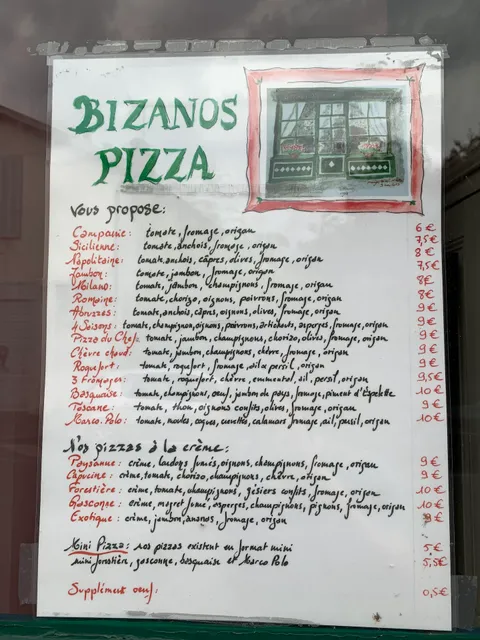 BIZANOS
PIZZA
Vous propose:
Campanie: tomate, fromage, origan 6 €
Sicilienne: tomate, anchois, fromage, origan 7,5€
Napolitaine: tomate, anchois, câpres, olives, fromage, origan 8 €
Jambon: tomate, jambon, fromage, origan 7,5€
Milano: tomate, jambon, champignons, fromage, origan 8€
Romaine: tomate, chorizo, oignons, poivrons, fromage, origan 8€
Abruzzes: tomate, anchois, câpres, oignons, olives, fromage, origan 9€
4 Saisons: tomate, champignon, oignons, poivrons, artichauts, asperges, fromage, origan 9€
Pizza du Chef: tomate, jambon, champignons, chorizo, olives, fromage, origan 9€
Chèvre chaud: tomate, jambon, champignons, chèvre, fromage, origan 9€
Roquefort: tomate, roquefort, fromage, ail, persil, origan 9€
3 Fromages: tomate, roquefort, chèvre, emmental, ail, persil, origan 9,5€
Basquaise: tomate, champignons, oeuf, jambon de pays, fromage, piment d'Espelette 10 €
Toscane: tomate, thon, oignons confits, olives, fromage, origan 9 €
Marco Polo: tomate, moules, coques, crevettes, calamars, fromage, ail, persil, origan 10€
Nos pizzas à la crème:
Paysanne: crème, lardons fumés, oignons, champignons, fromage, origan 9€
Capucine: crème, tomate, chorizo, champignons, chèvre, origan 9€
Forestière: crème, tomate, champignons, gésiers confits, fromage, origan 10€
Gasconne: crème, magret fumé, asperges, champignons, pignons, fromage, origan 10€
Exotique: crème, jambon, ananas, fromage, origan 9€
Mini Pizza: nos pizzas existent en format mini 5€
mini forestière, gasconne, basquaise et Marco Polo 5,5€
Supplément oeuf: 0,5€